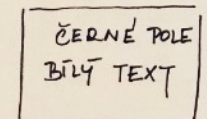 ČERNÉ POLE
BÍLÝ TEXT